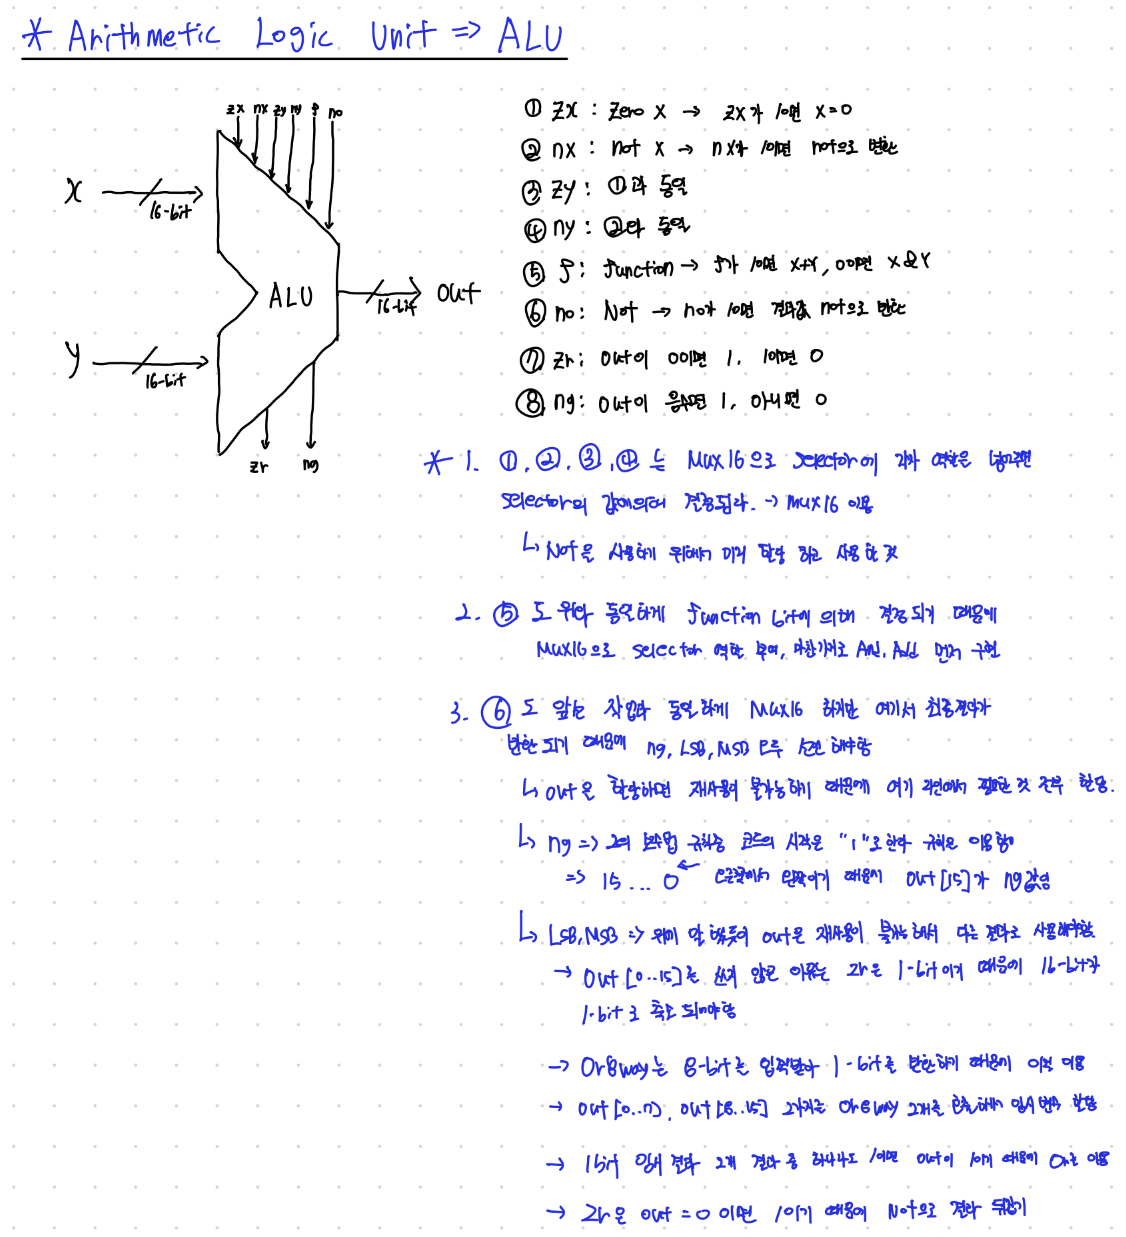 * Arithmetic Logic Unit => ALU
zx nx zy ny f no
x
16-bit
ALU
out
16-bit
y
16-bit
zr ng
① zx : zero x → zx가 1이면 x=0
② nx : not x → nx가 1이면 not으로 변환
③ zy : ①과 동일
④ ny : ②와 동일
⑤ f : function → f가 1이면 x+y, 0이면 x&y
⑥ no : Not → no가 1이면 결과값 not으로 변환
⑦ zr : out이 0이면 1, 1이면 0
⑧ ng : out이 음수면 1, 아니면 0
* 1. ①, ②, ③, ④ 는 Mux16으로 selector에 각각 역할을 넣어주면
selector의 값에의해 결정된다. → Mux16 이용
↳ Not을 사용하기 위해서 미리 할당 하고 사용한 것
2. ⑤ 도 위와 동일하게 function bit에 의해 결정되기 때문에
Mux16으로 selector 역할 부여, 마찬가지로 And, Add 먼저 구현
3. ⑥ 도 앞선 작업과 동일하게 Mux16 하지만 여기서 최종결과가
반환되기 때문에 ng, LSB, MSB 모두 해야함
↳ out은 할당하면 재사용이 불가능하기 때문에 여기 라인에서 필요한 것 전부 할당.
↳ ng => 2의 보수법 규칙중 코드의 시작은 "1"로 한다 규칙을 이용함
=> 15 ... 0 ← 오른쪽에서 왼쪽이기 때문에 out[15]가 ng값임
↳ LSB, MSB => 위에 말했듯이 out은 재사용이 불가능해서 다른 결과로 사용해야함
→ out[0..15]를 쓰지 않은 이유는 zr은 1-bit이기 때문에 16-bit가
1-bit로 축소 되어야함
→ Or8way는 8-bit를 입력받아 1-bit를 반환하기 때문에 이걸 이용
→ out[0..7], out[8..15] 2가지는 Or8way 2개를 호출해서 임시 변수 할당
→ 1bit 결과 2개 결과 중 하나라도 1이면 out이 1이기 때문에 Or를 이용
→ zr은 out=0이면 1이기 때문에 Not으로 결과 뒤집기